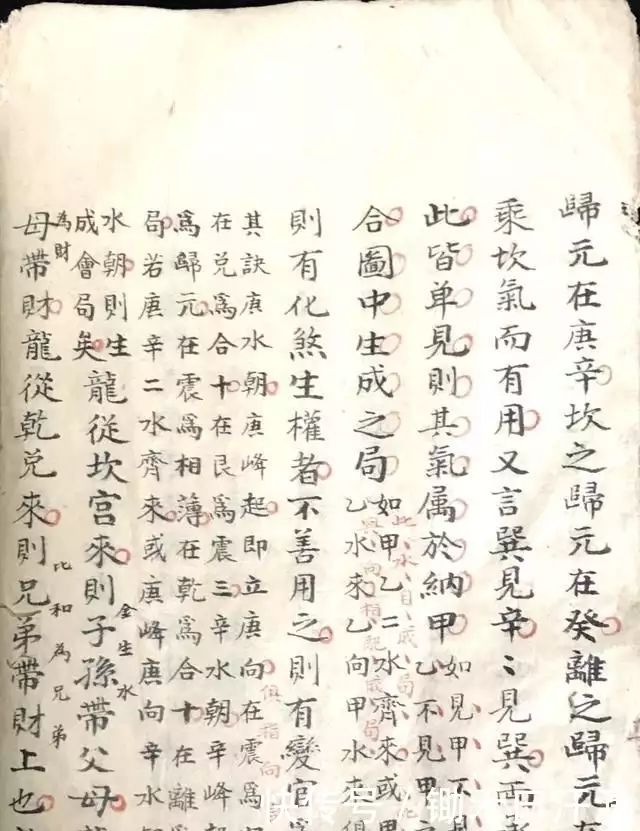 歸元在庚辛坎之歸元在癸離之歸元在
乘坎氣而有用又言巽見辛〻見巽両
此皆单見則其氣属於納甲
如見甲不見
乙不見甲
合圖中生成之局
如甲乙二水齊來或甲
乙水來乙向甲水來俱
此水自成局
與向相配成局
則有化煞生權者不善用之則有變官為
其訣庚水朝庚峰起即立庚向在震為
俱指向
在兑為合十在艮為震三辛水朝辛峰起
為歸元在震為相薄在乾為合十在離為
局若庚辛二水齊來或庚峰庚向辛水
水朝則生
成會局矣
龍從坎宮來則子孫帶父母
金生水
為財
母帶財龍從乾兑來則兄弟帶財上也
比和為兄弟
快传号 / 锄禾